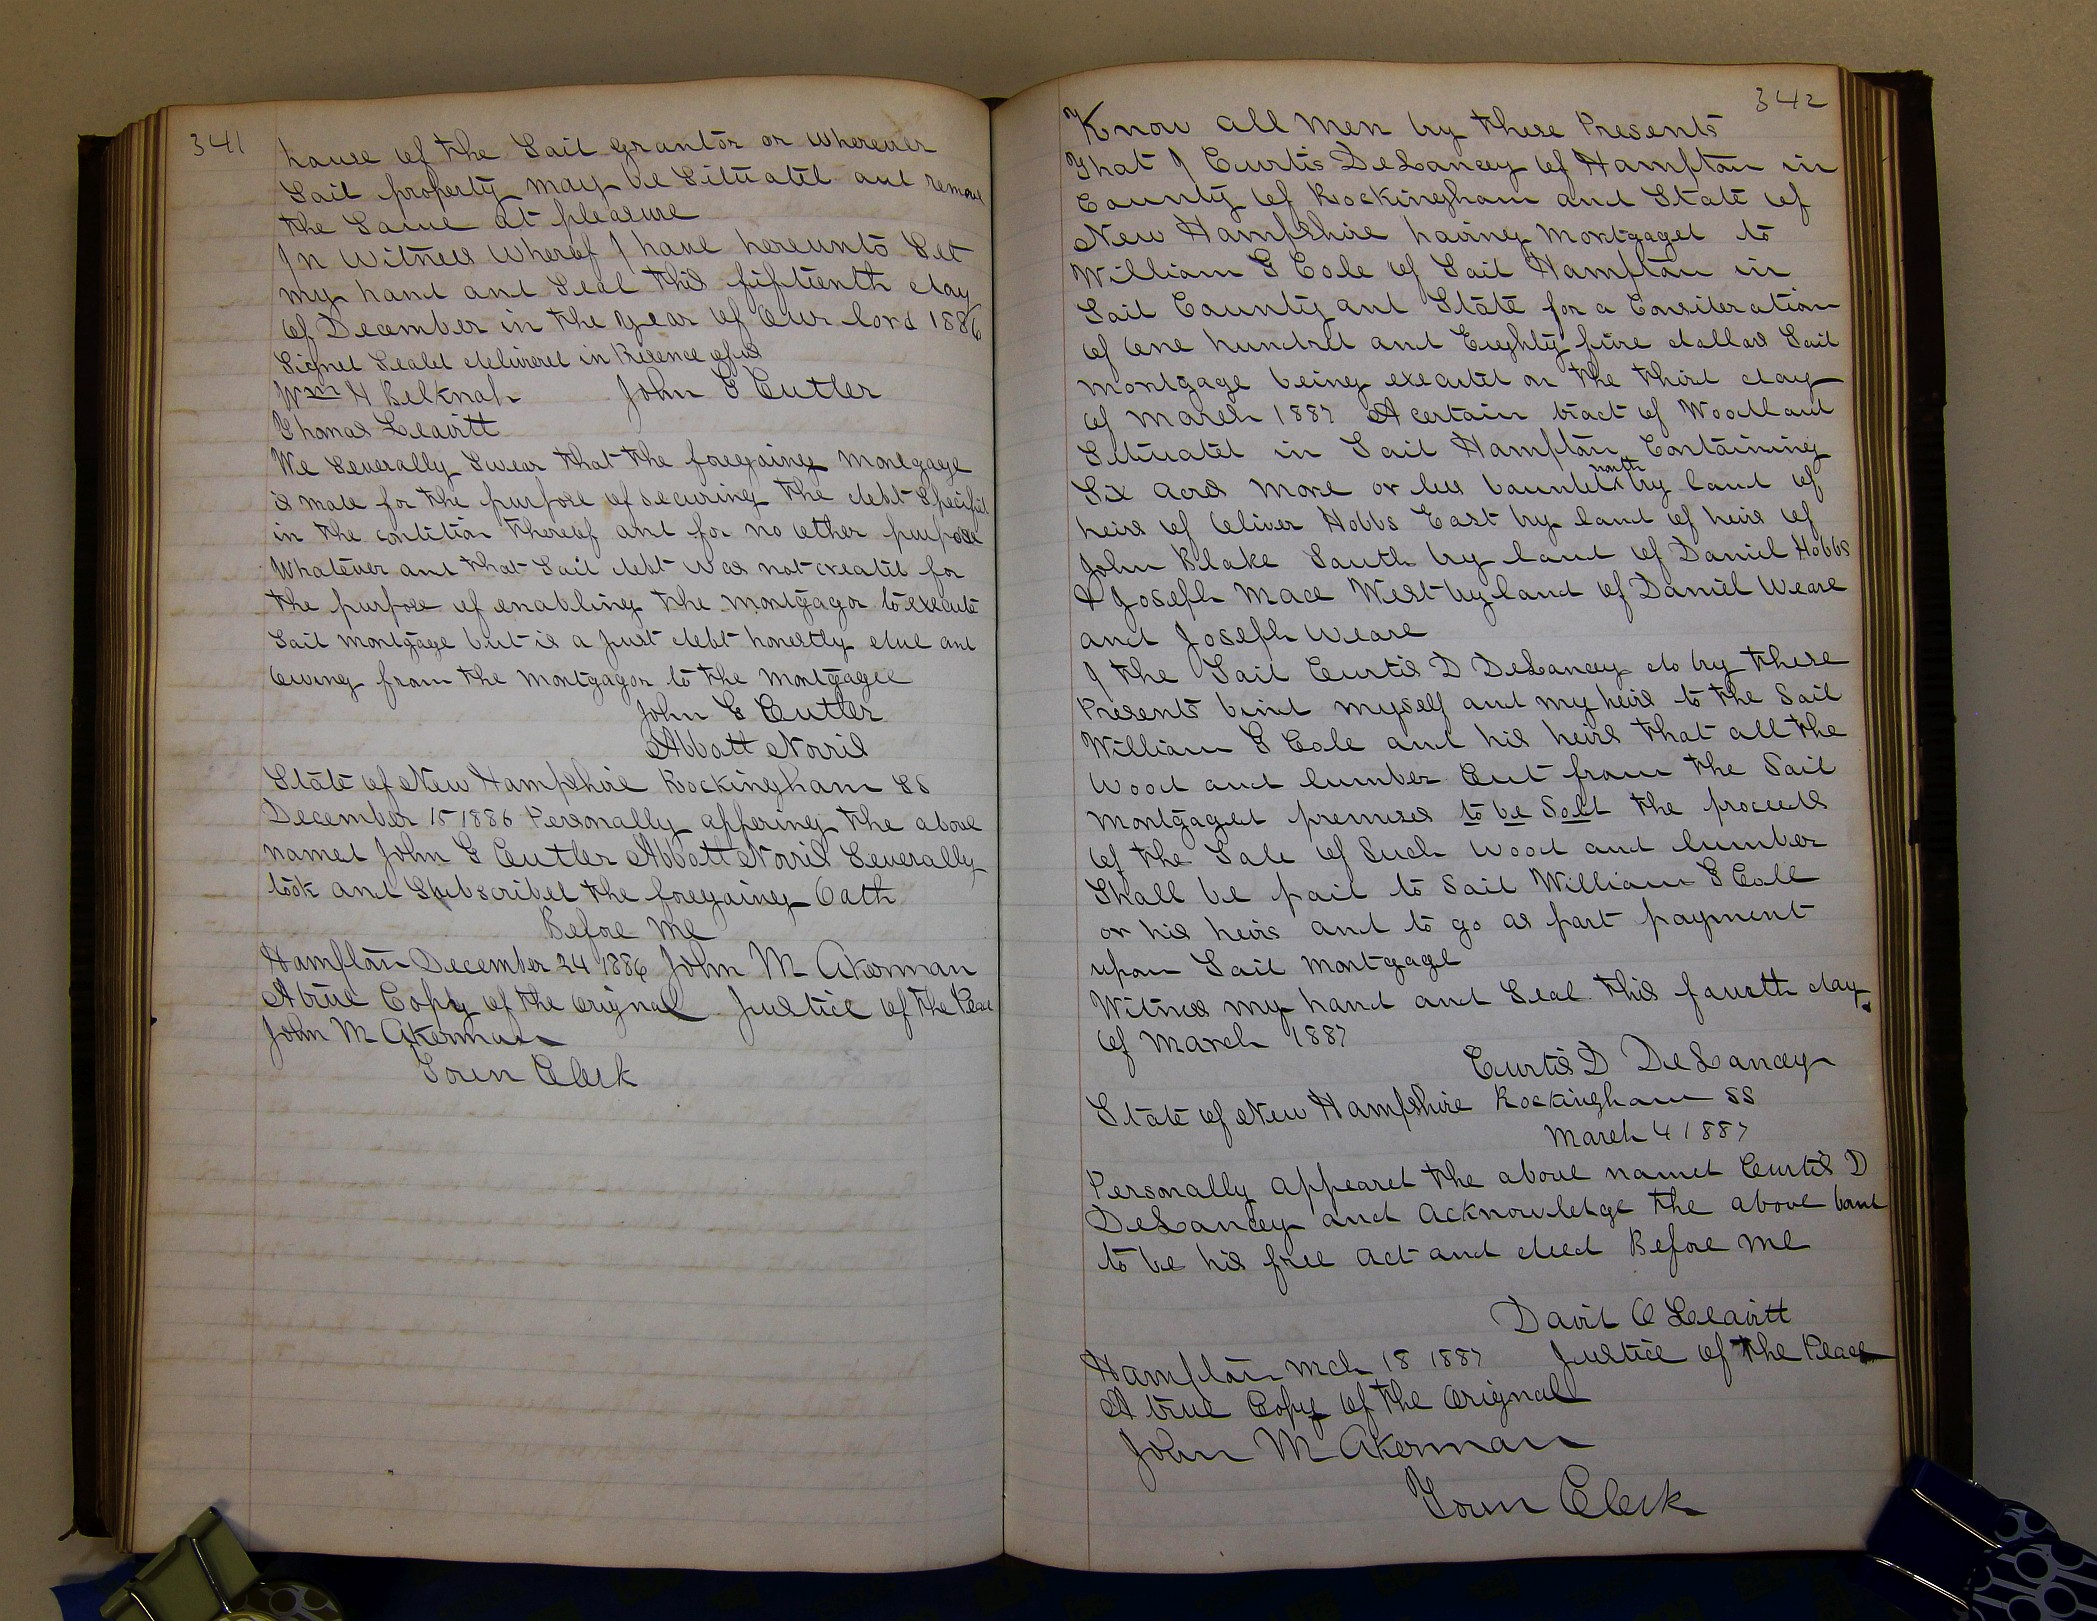 341
house of the Said grantor or wherever
Said property may be Situated and remove
the Same at pleasure
In Witness Whereof I have hereunto Set
my hand and Seal this fifteenth day
of December in the year of Our lord 1886
Signed Sealed delivered in Presence of us
Wm H Belknap John G Cutler
Thomas Leavitt
We Severally Swear that the foregoing mortgage
is made for the purpose of securing the debt Specified
in the condition thereof and for no other purpose
Whatever and that Said debt was not created for
the purpose of enabling the mortgagor to execute
Said mortgage but is a just debt honestly due and
owing from the mortgagor to the mortgagee
John G Cutler
Abbott Norris
State of New Hampshire Rockingham SS
December 15 1886 Personally appering the above
named John G Cutler Abbott Norris Severally
took and Subscribed the foregoing Oath
Before Me
Hampton December 24 1886 John M Akerman
A true Copy of the Orignal Justice of the Peace
John M Akerman
Town Clerk
342
Know all Men by these Presents
That I Curtis DeLancey of Hampton in
County of Rockingham and State of
New Hampshire having Mortgaged to
William G Cole of Said Hampton in
Said County and State for a Consideration
of One hundred and Eighty five dollars Said
mortgage being executed on the third day
of March 1887 A certain tract of Woodland
Situated in Said Hampton Containing
Six acres more or less bounded north by land of
heirs of Oliver Hobbs East by land of heirs of
John Blake South by land of Daniel Hobbs
& Joseph Mace West by land of Daniel Weare
and Joseph Weare
I the Said Curtis D DeLancey do by these
Presents bind myself and my heirs to the Said
William G Cole and his heirs that all the
Wood and lumber Cut from the Said
Mortgaged premises to be Sold the proceeds
of the Sale of Such Wood and lumber
Shall be paid to Said William G Cole
or his heirs and to go as part payment
upon Said mortgage
Witness my hand and Seal this fourth day
of March 1887
Curtis D DeLancey
State of New Hampshire Rockingham SS
March 4 1887
Personally appeared the above named Curtis D
DeLancey and acknowledge the above bond
to be his free act and deed Before Me
David O Leavitt
Hampton Mch 18 1887 Justice of the Peace
A true Copy of the Orignal
John M Akerman
Town Clerk